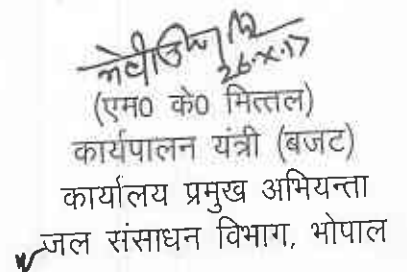 26.X.17
(एम0 के0 मित्तल)
कार्यपालन यंत्री (बजट)
कार्यालय प्रमुख अभियन्ता
जल संसाधन विभाग, भोपाल